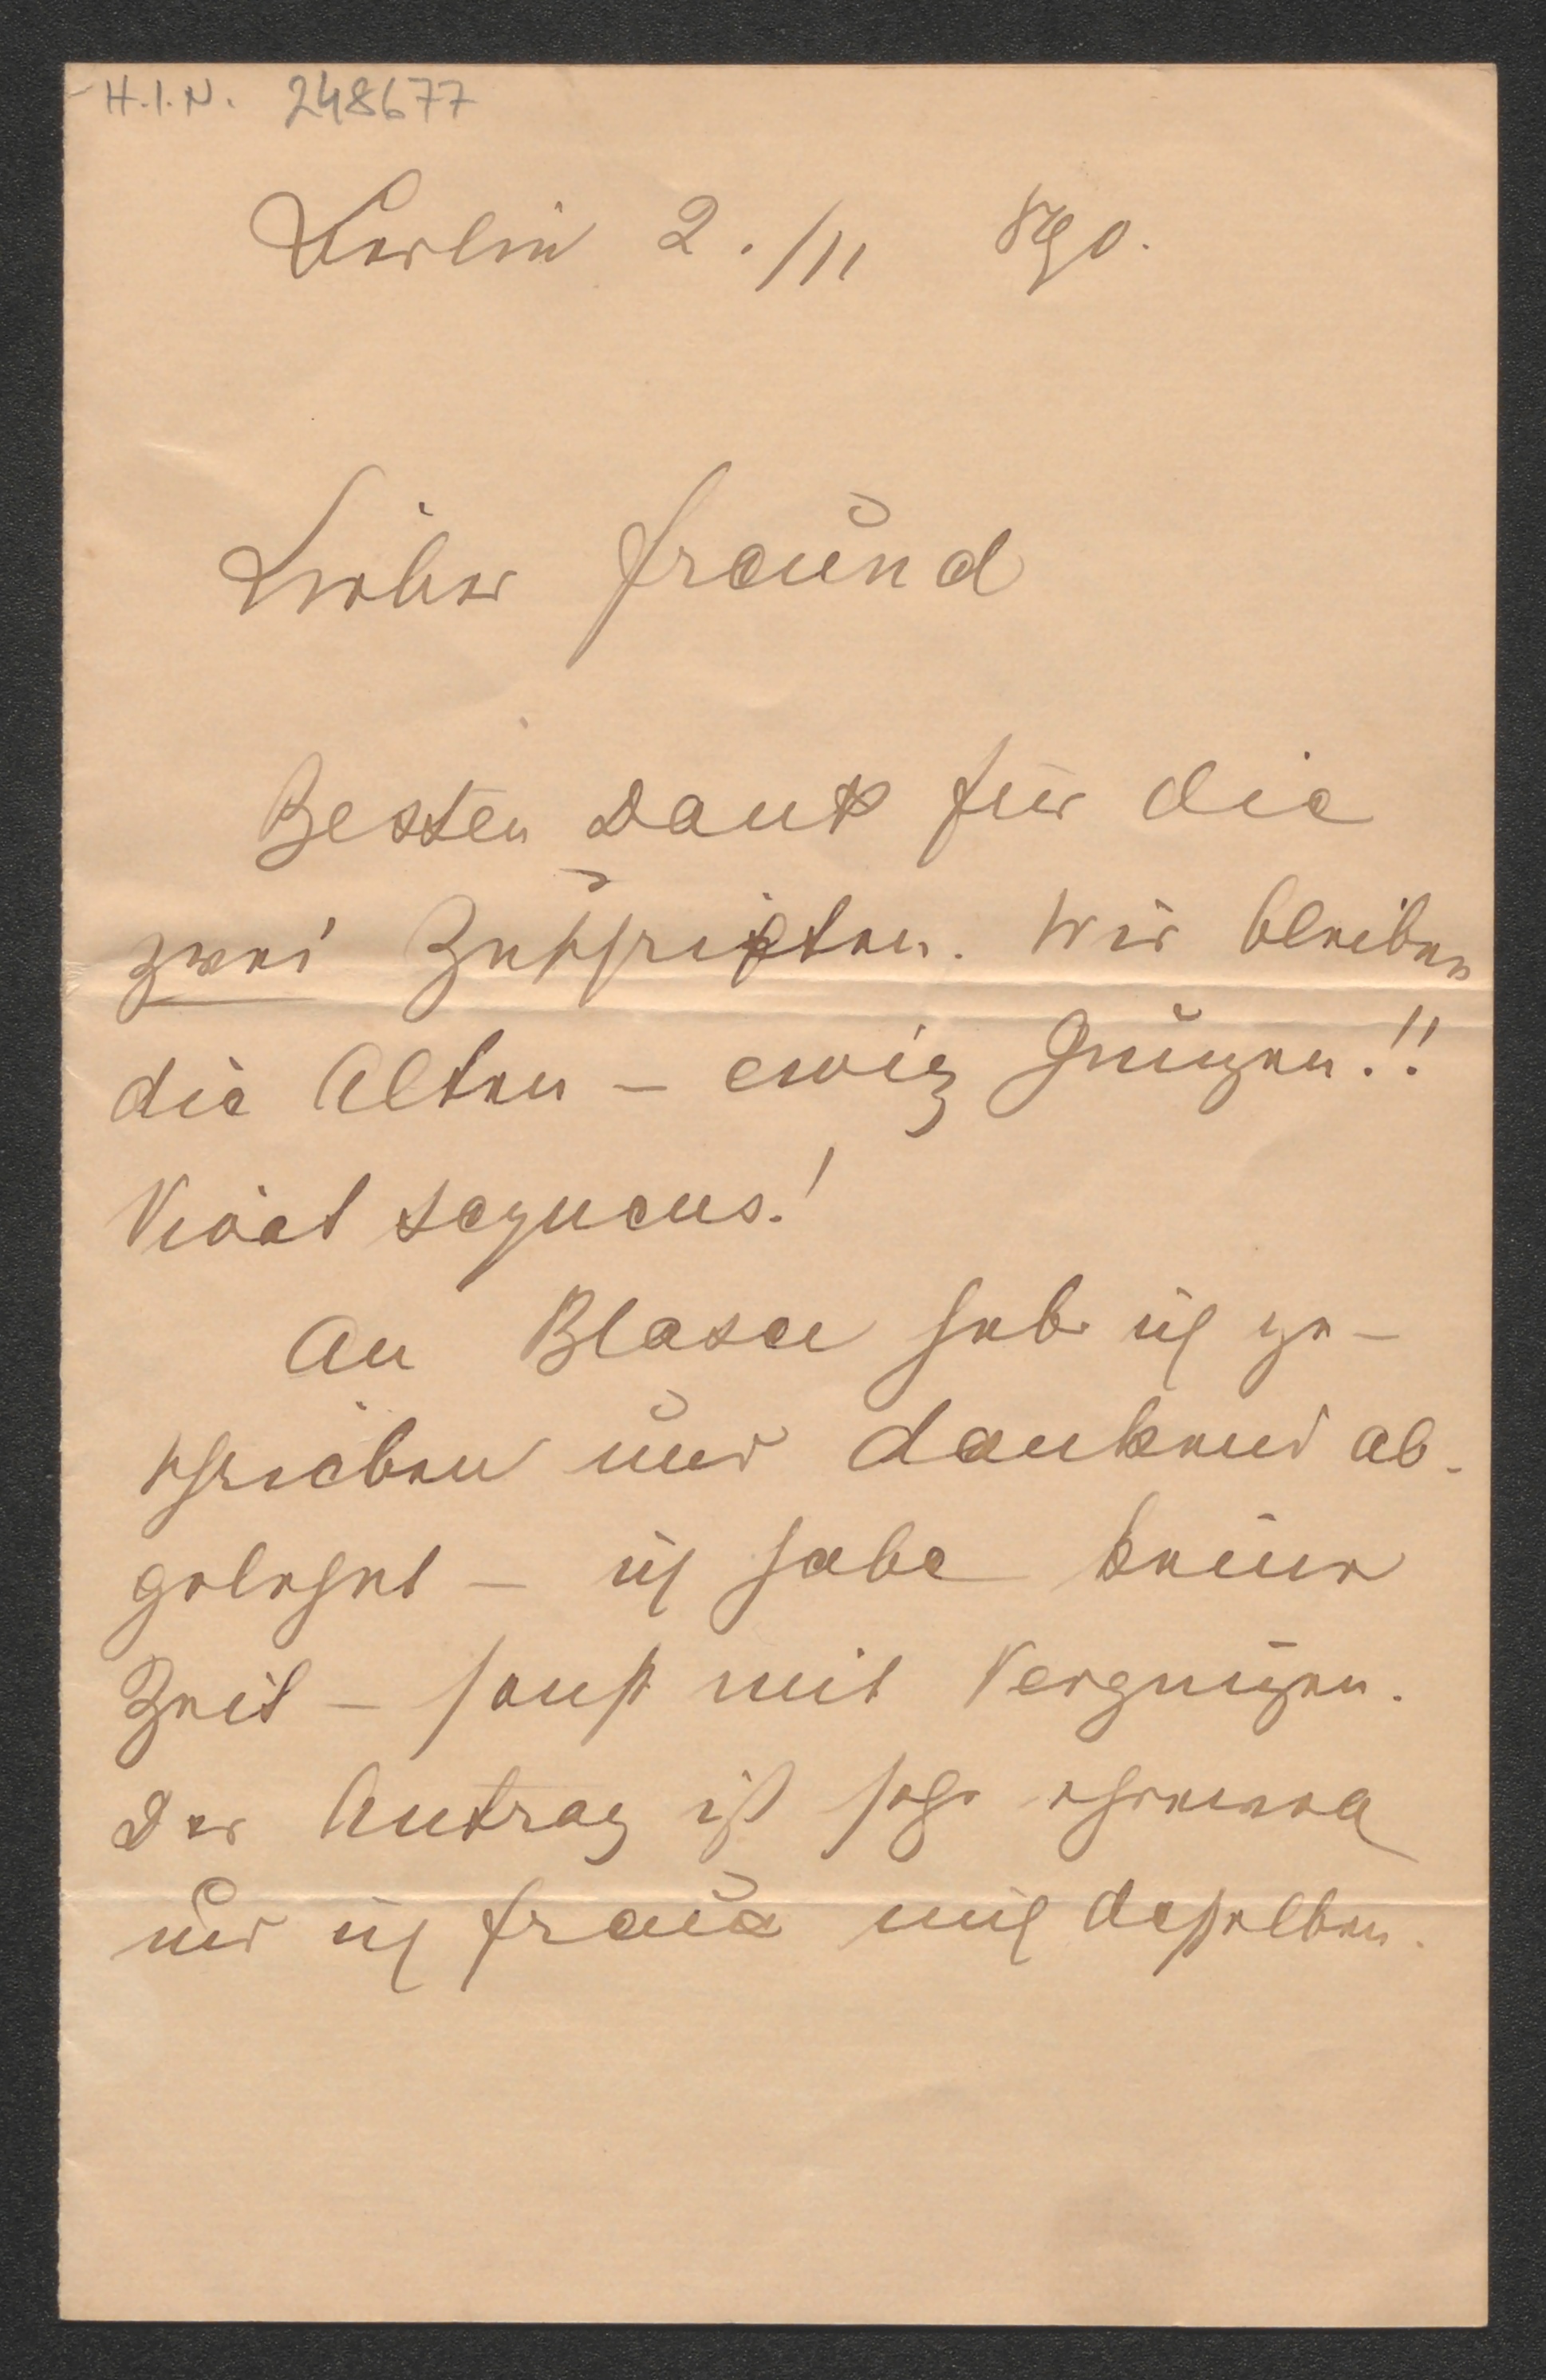 H.I.N. 248677
Berlin 2./11 890.
Lieber Freund
Besten Dank für die
zwei Zuschriften. Wir bleiben
die Alten – ewig Jungen!!
Vivat sequens!
An Blasel hab ich ge-
schrieben und dankend ab-
gelehnt – ich habe keine
Zeit – sonst mit Vergnügen.
Der Antrag ist sehr ehrend
und ich freue mich desselben.